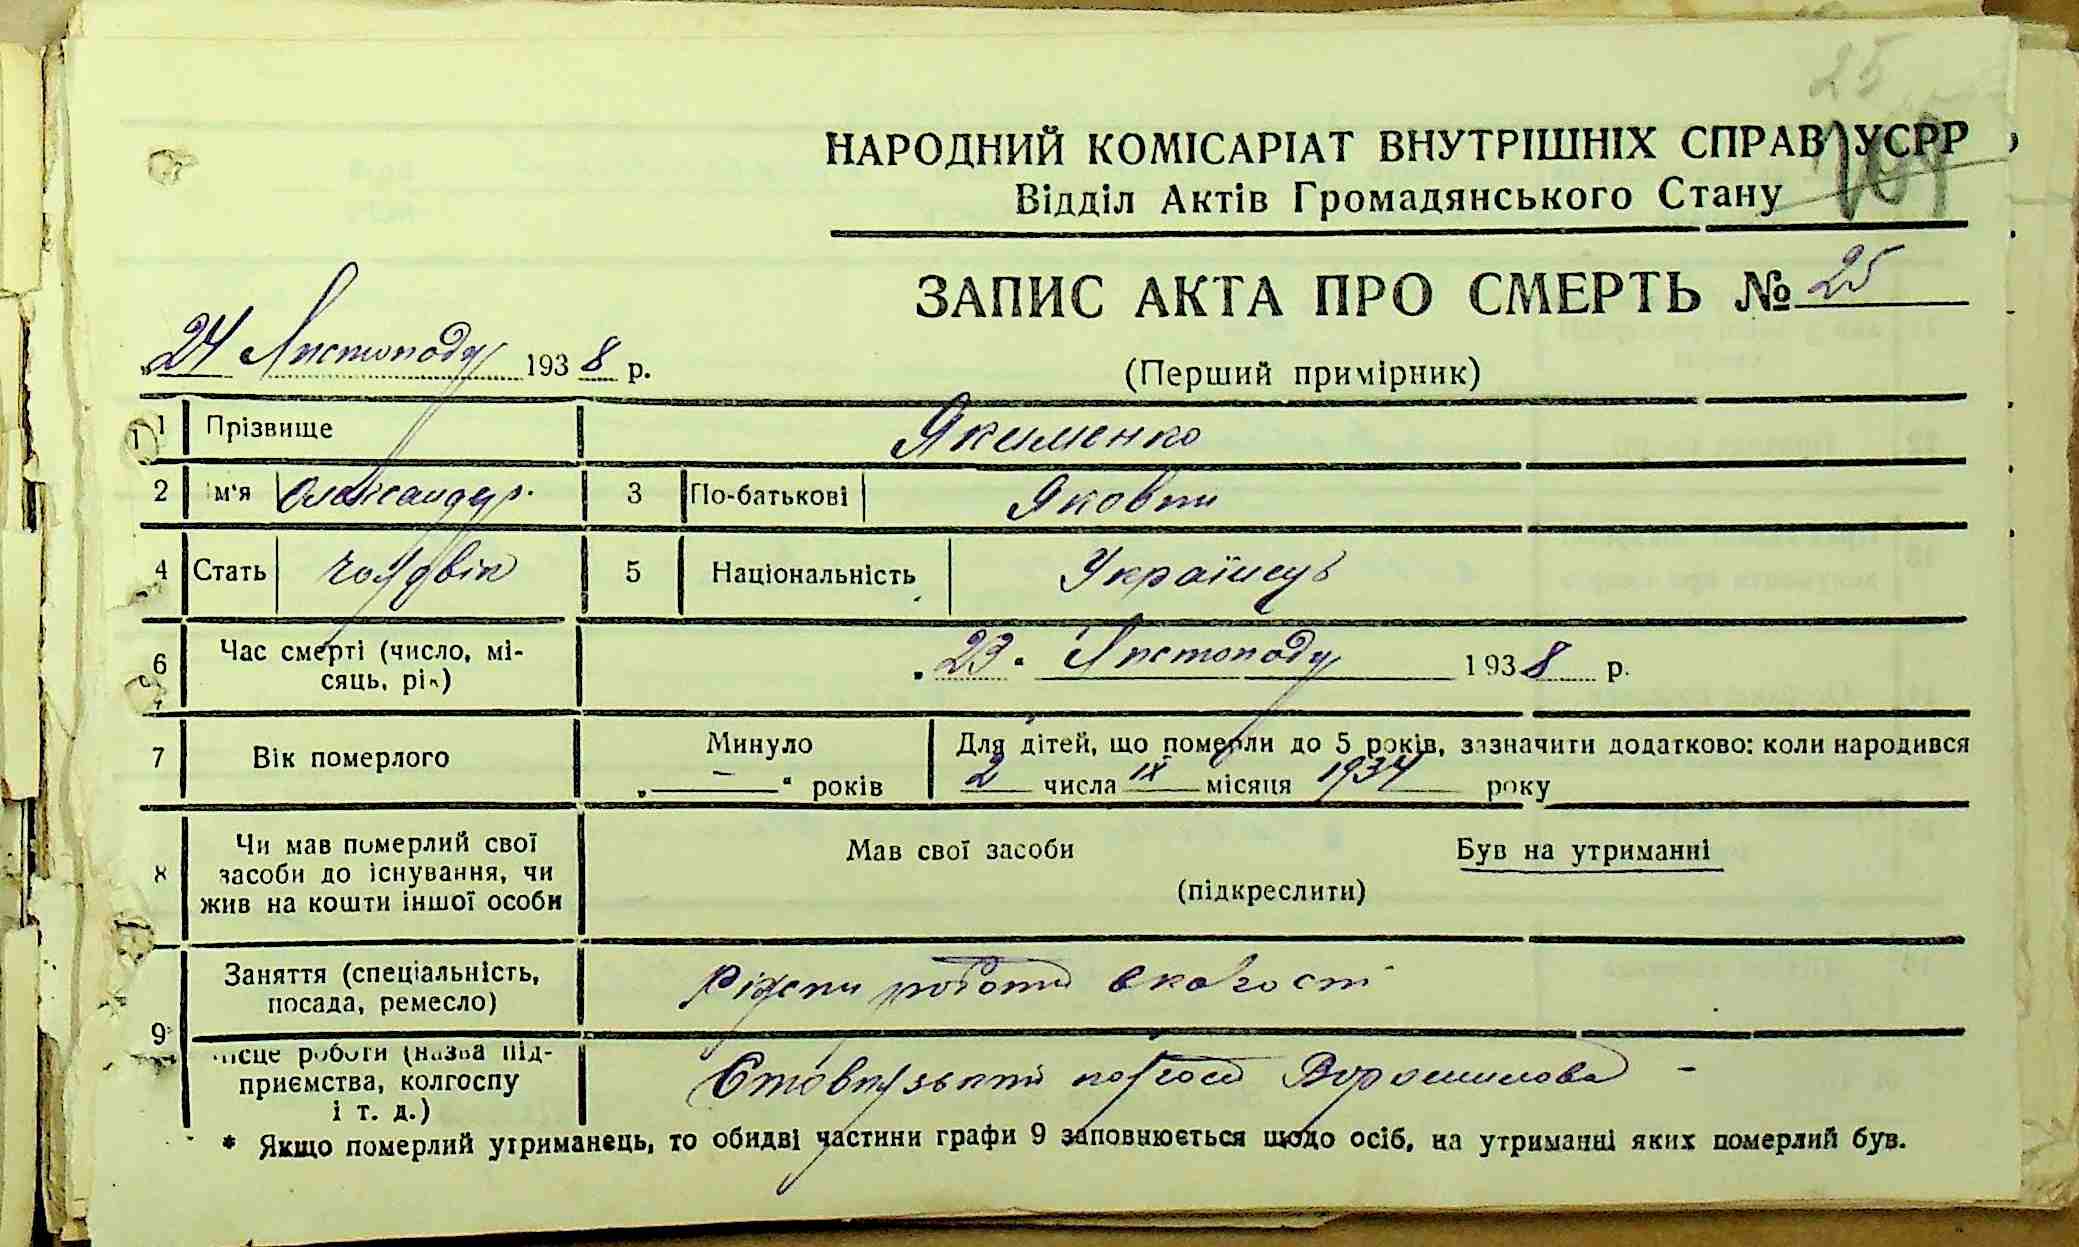 25
НАРОДНИЙ КОМІСАРІАТ ВНУТРІШНІХ СПРАВ УСРР
Відділ Актів Громадянського Стану
ЗАПИС АКТА ПРО СМЕРТЬ № 25
„24 Листопаду 1938 р.
(Перший примірник)
1 Прізвище Якименко
2 Ім'я Олександр. 3 По-батькові Якович
4 Стать чоловік 5 Національність Українець
6 Час смерті (число, мі-
сяць, рік) „23" Листопаду 1938 р.
7 Вік померлого Минуло „—" років Для дітей, що померли до 5 років, зазначити додатково: коли народився
2 числа IX місяця 1934 року
8 Чи мав померлий свої
засоби до існування, чи
жив на кошти іншої особи
Мав свої засоби Був на утриманні
(підкреслити)
9 Заняття (спеціальність,
посада, ремесло) роботи
Місце роботи (назва під-
приємства, колгоспу
і т. д.) колгосп Ворошилова
* Якщо померлий утриманець, то обидві частини графи 9 заповнюється щодо осіб, на утриманні яких померлий був.